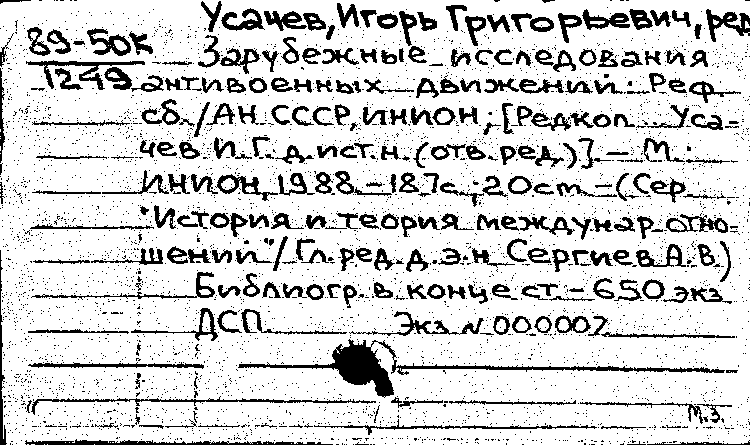 Усачев, Игорь Григорьевич, ред
89-50к Зарубежные исследования
1249 антивоенных движений: Реф.
сб./АН СССР, ИНИОН; [Редкол. Уса-
чев И.Г. д.ист.н. (отв. ред.)]. — М.:
ИНИОН, 1988. — 187с.; 20см. — (Сер.
"История и теория междунар. отно-
шений"/ Гл. ред. д.э.н. Сергиев А.В.)
Библиогр. в конце ст. — 650 экз
ДСП. Экз N 000007
М.З.